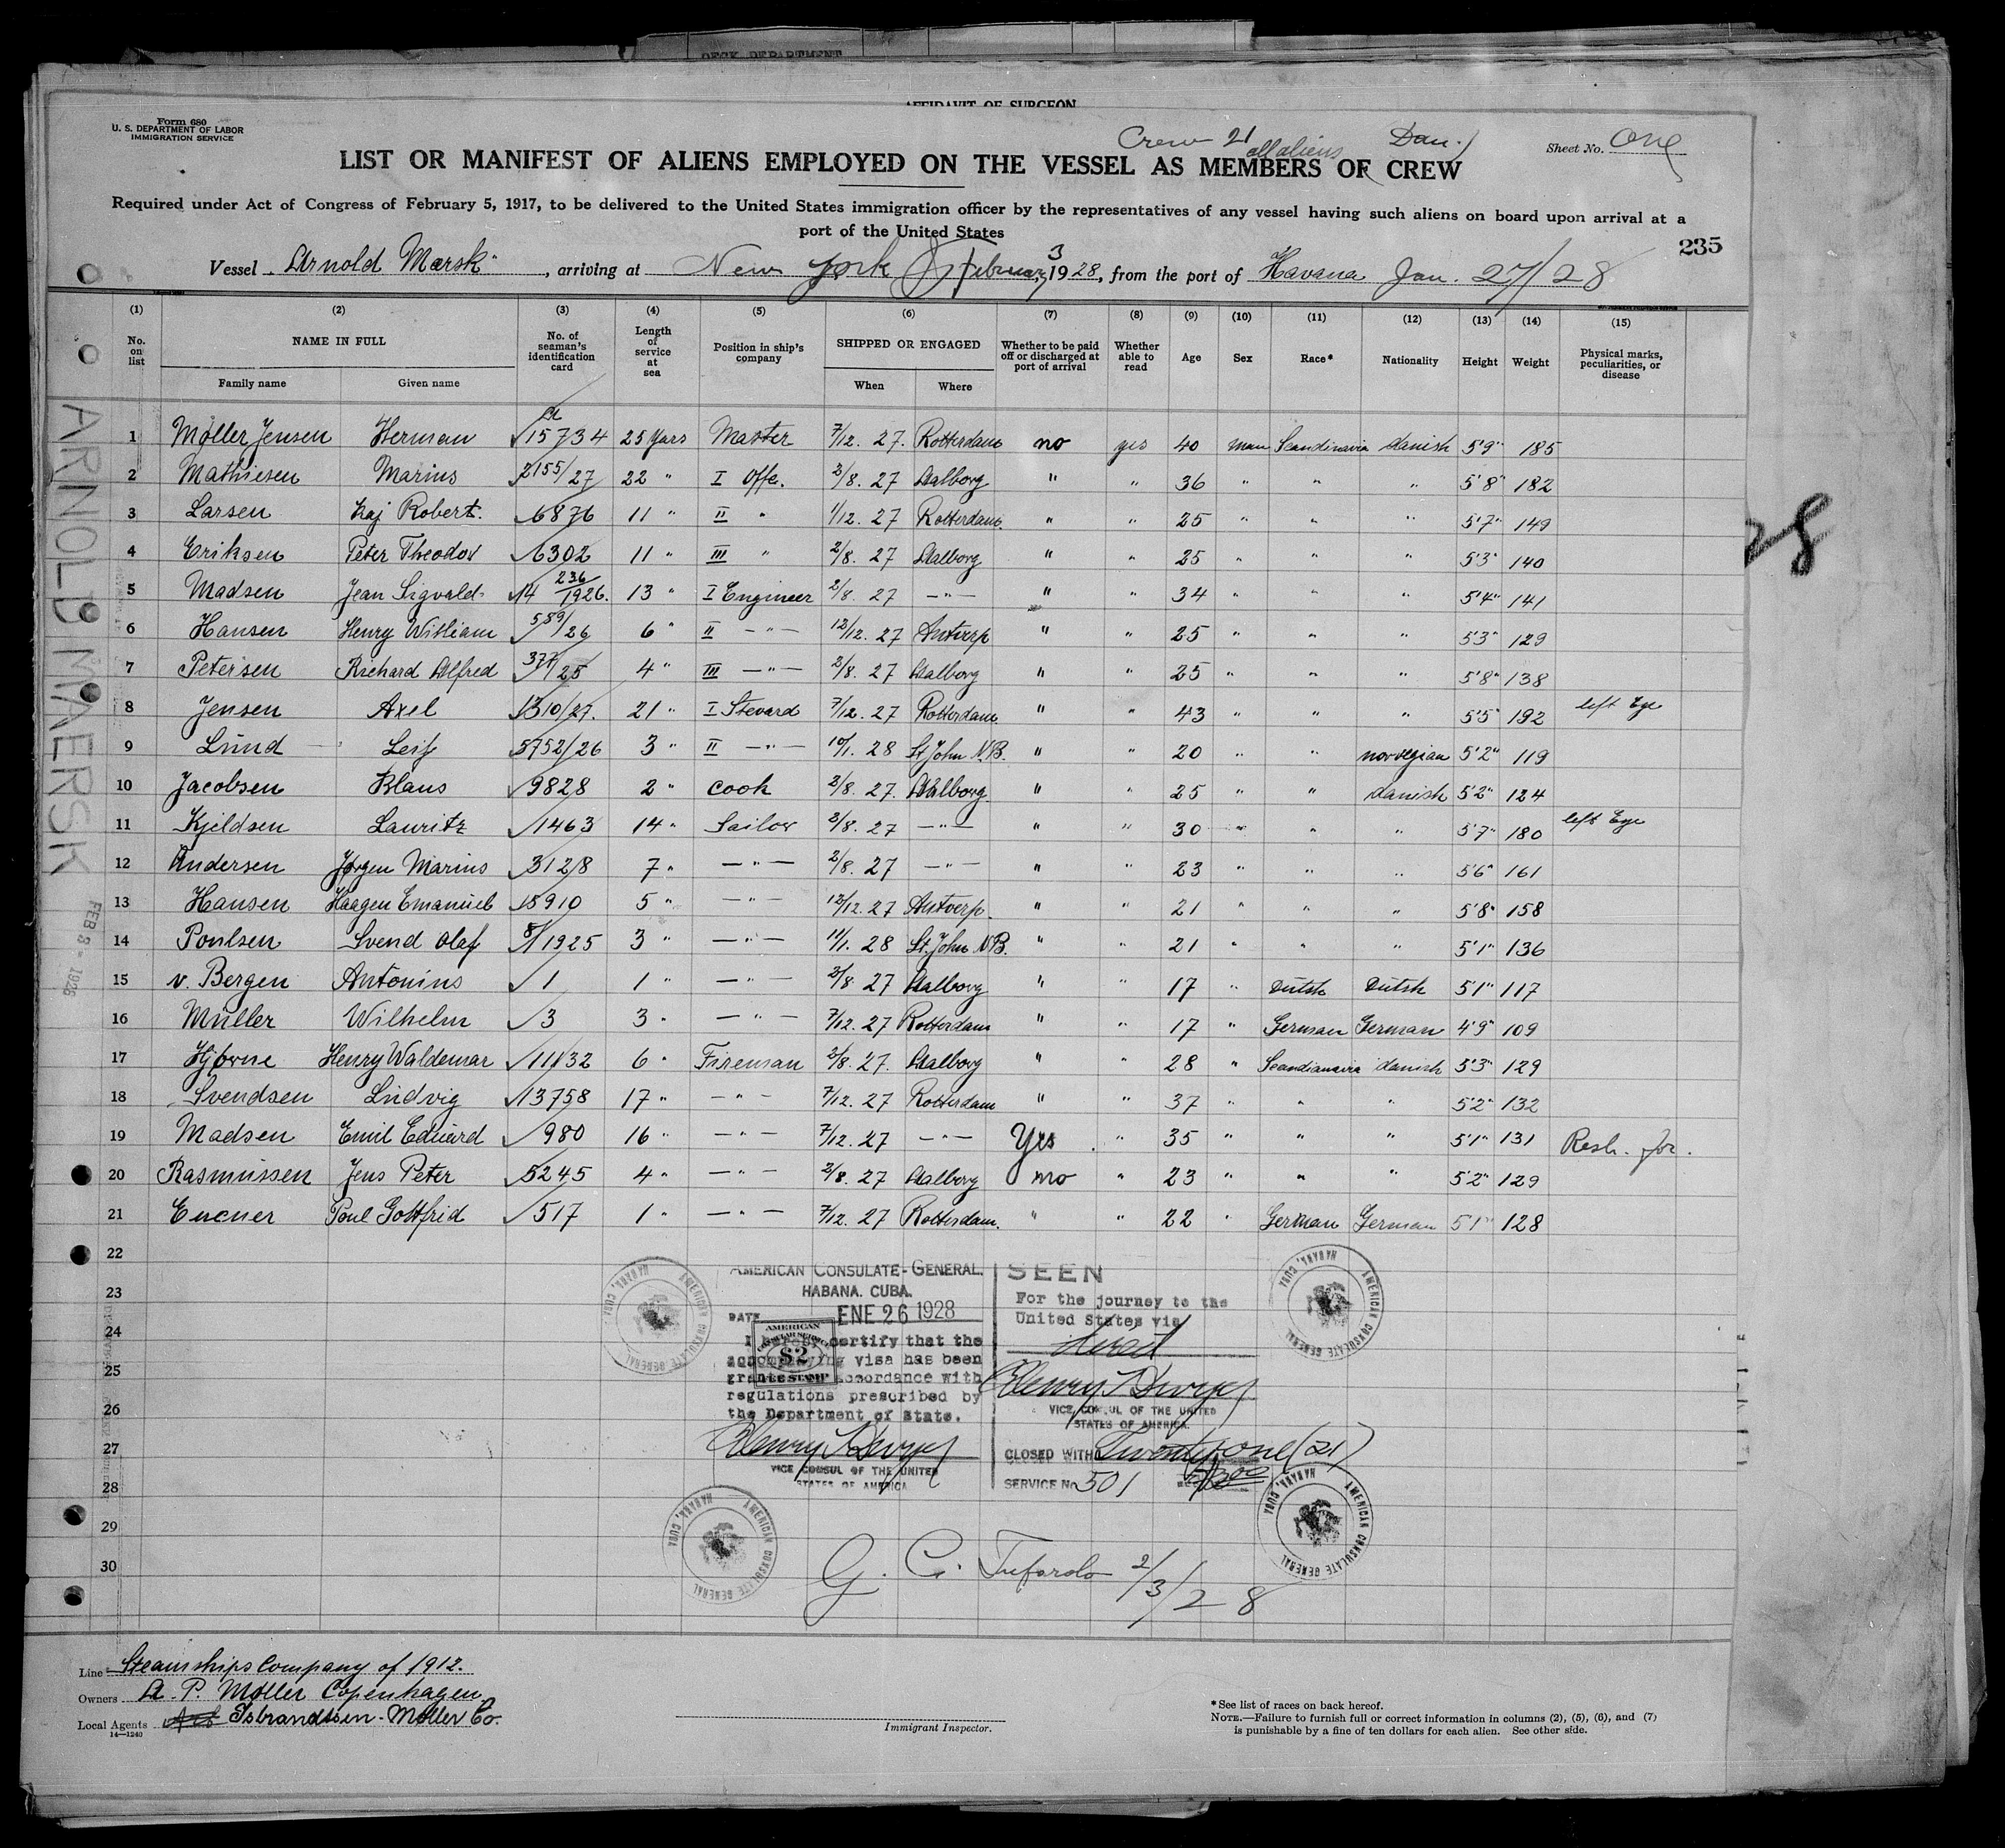 DECK DEPARTMENT
AFFIDAVIT OF SURGEON
Form 680
U. S. DEPARTMENT OF LABOR
IMMIGRATION SERVICE
Crew 21 all aliens Dan.
Sheet No. One
LIST OR MANIFEST OF ALIENS EMPLOYED ON THE VESSEL AS MEMBERS OF CREW
Required under Act of Congress of February 5, 1917, to be delivered to the United States immigration officer by the representatives of any vessel having such aliens on board upon arrival at a
port of the United States
235
Vessel "Arnold Mærsk", arriving at New York February 3 1928, from the port of Havana Jan. 27/28
(1) (2) (3) (4) (5) (6) (7) (8) (9) (10) (11) (12) (13) (14) (15)
No. on list NAME IN FULL No. of seaman's identification card Length of service at sea Position in ship's company SHIPPED OR ENGAGED Whether to be paid off or discharged at port of arrival Whether able to read Age Sex Race* Nationality Height Weight Physical marks, peculiarities, or disease
Family name Given name When Where
1 Møller Jensen Herman 15734 25 Years Master 7/12. 27. Rotterdam no yes 40 man Scandinavia danish 5'9" 185
2 Mathiesen Marius 2155/27 22 " I Offc. 2/8. 27 Aalborg " " 36 " " " 5'8" 182
3 Larsen Kaj Robert. 6876 11 " II " 1/12. 27 Rotterdam. " " 25 " " " 5'7" 149
4 Eriksen Peter Theodor 6302 11 " III " 2/8. 27 Aalborg " " 25 " " " 5'3" 140
5 Madsen Jean Sigvald 14 236/1926. 13 " I Engineer 2/8. 27 —"— " " 34 " " " 5'4" 141
6 Hansen Henry William 559/26 6 " II —"— 12/12. 27 Antverp " " 25 " " " 5'3" 129
7 Petersen Richard Alfred 377/25 4 " III —"— 2/8. 27 Aalborg " " 25 " " " 5'8" 138
8 Jensen Axel 1310/27. 21 " I Stevard 7/12. 27 Rotterdam. " " 43 " " " 5'5" 192 left Eye
9 Lund Leif 5752/26 3 " II —"— 10/1. 28 St John N.B. " " 20 " " norvegian 5'2" 119
10 Jacobsen Blaus 9828 2 " cook 2/8. 27. Aalborg. " " 25 " " danish 5'2" 124
11 Kjeldsen Lauritz 1463 14 " Sailor 2/8. 27 —"— " " 30 " " " 5'7" 180 left Eye
12 Andersen Jørgen Marius 3128 7 " —"— 2/8. 27 —"— " " 23 " " " 5'6" 161
13 Hansen Haagen Emanuel 15910 5 " —"— 12/12. 27 Antverp. " " 21 " " " 5'8" 158
14 Poulsen Svend Olaf 8/1925 3 " —"— 11/1. 28 St. John N.B. " " 21 " " " 5'1" 136
15 v. Bergen Antonius 1 1 " —"— 2/8. 27 Aalborg " " 17 " Dutsh Dutsh 5'1" 117
16 Müller Wilhelm 3 3 " —"— 7/12. 27 Rotterdam " " 17 " German German 4'9" 109
17 Hjørne Henry Waldemar 11132 6 " Fireman 2/8. 27. Aalborg " " 28 " Scandianavia danish 5'3" 129
18 Svendsen Ludvig 13758 17 " —"— 7/12. 27 Rotterdam " " 37 " " " 5'2" 132
19 Madsen Emil Eduard 980 16 " —"— 7/12. 27 —"— Yes " 35 " " " 5'1" 131
20 Rasmussen Jens Peter 5245 4 " —"— 2/8. 27 Aalborg no " 23 " " " 5'2" 129
21 Eucner Poul Gottfrid 517 1 " —"— 7/12. 27 Rotterdam. " " 22 " German German 5'1" 128
22
23
24
25
26
27
28
29
30
ARNOLD MAERSK
FEB 3 - 1928
28
AMERICAN CONSULATE-GENERAL.
HABANA. CUBA.
DATE ENE 26 1928
I hereby certify that the
accompanying visa has been
granted in accordance with
regulations prescribed by
the Department of State.
AMERICAN
CONSULAR SERVICE
$2
FEE STAMP
VICE CONSUL OF THE UNITED
STATES OF AMERICA
SEEN
For the journey to the
United States via
direct
VICE CONSUL OF THE UNITED
STATES OF AMERICA.
CLOSED WITH Twenty one (21)
SERVICE No. 501
AMERICAN CONSULATE GENERAL HABANA, CUBA
AMERICAN CONSULATE GENERAL HABANA, CUBA
AMERICAN CONSULATE GENERAL HABANA, CUBA
AMERICAN CONSULATE GENERAL HABANA, CUBA
G. C. Tufarolo 2/3/28
Line Steamships Company of 1912.
Owners A. P. Møller Copenhagen
Local Agents Isbrandtsen-Moller Co.
14—1240
Immigrant Inspector.
*See list of races on back hereof.
NOTE.—Failure to furnish full or correct information in columns (2), (5), (6), and (7)
is punishable by a fine of ten dollars for each alien. See other side.